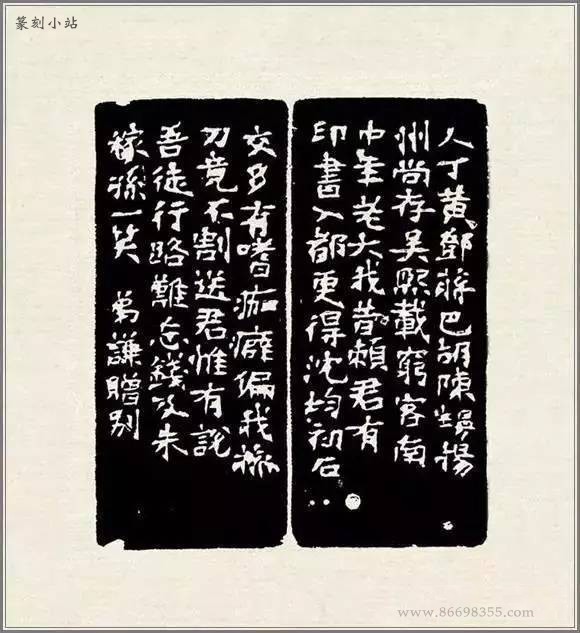 篆刻小站
人丁黃鄧蔣巴胡陳揚
州尚存吳熙載窮客南
中年老大我昔賴君有
印書入都更得沈均初石
交多有嗜痂癖偏我操
刀竟不割送君惟有說
吾徒行路難忘錢及朱
稼孫一笑 謙贈別
www.86698355.com